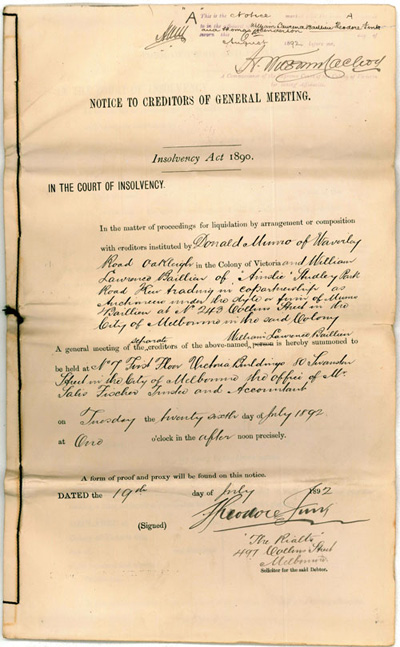 "A"
This is the Notice marked A
William Lawrence Baillieu Theodore Fink
and Thomas
August 1892
NOTICE TO CREDITORS OF GENERAL MEETING.
Insolvency Act 1890.
IN THE COURT OF INSOLVENCY.
In the matter of proceedings for liquidation by arrangement or composition
with creditors instituted by Donald Munro of Waverley
Road Oakleigh in the Colony of Victoria and William
Lawrence Baillieu of "Ainslie" Studley Park
Road Kew trading in copartnership as
Auctioneers under the style or firm of Munro
Baillieu at No 243 Collins Street in the
City of Melbourne in the said Colony
separate William Lawrence Baillieu
A general meeting of the creditors of the above-named person is hereby summoned to
be held at No 7 First Floor Victoria Buildings 80 Swanston
Street in the City of Melbourne the office of Mr
Fischer Trustee and Accountant
on Tuesday the twenty sixth day of July 1892
at One o'clock in the after noon precisely.
A form of proof and proxy will be found on this notice.
DATED the 19th day of July 1892
(Signed) Theodore Fink
"The Rialto"
497 Collins Street
Melbourne
Solicitor for the said Debtor.